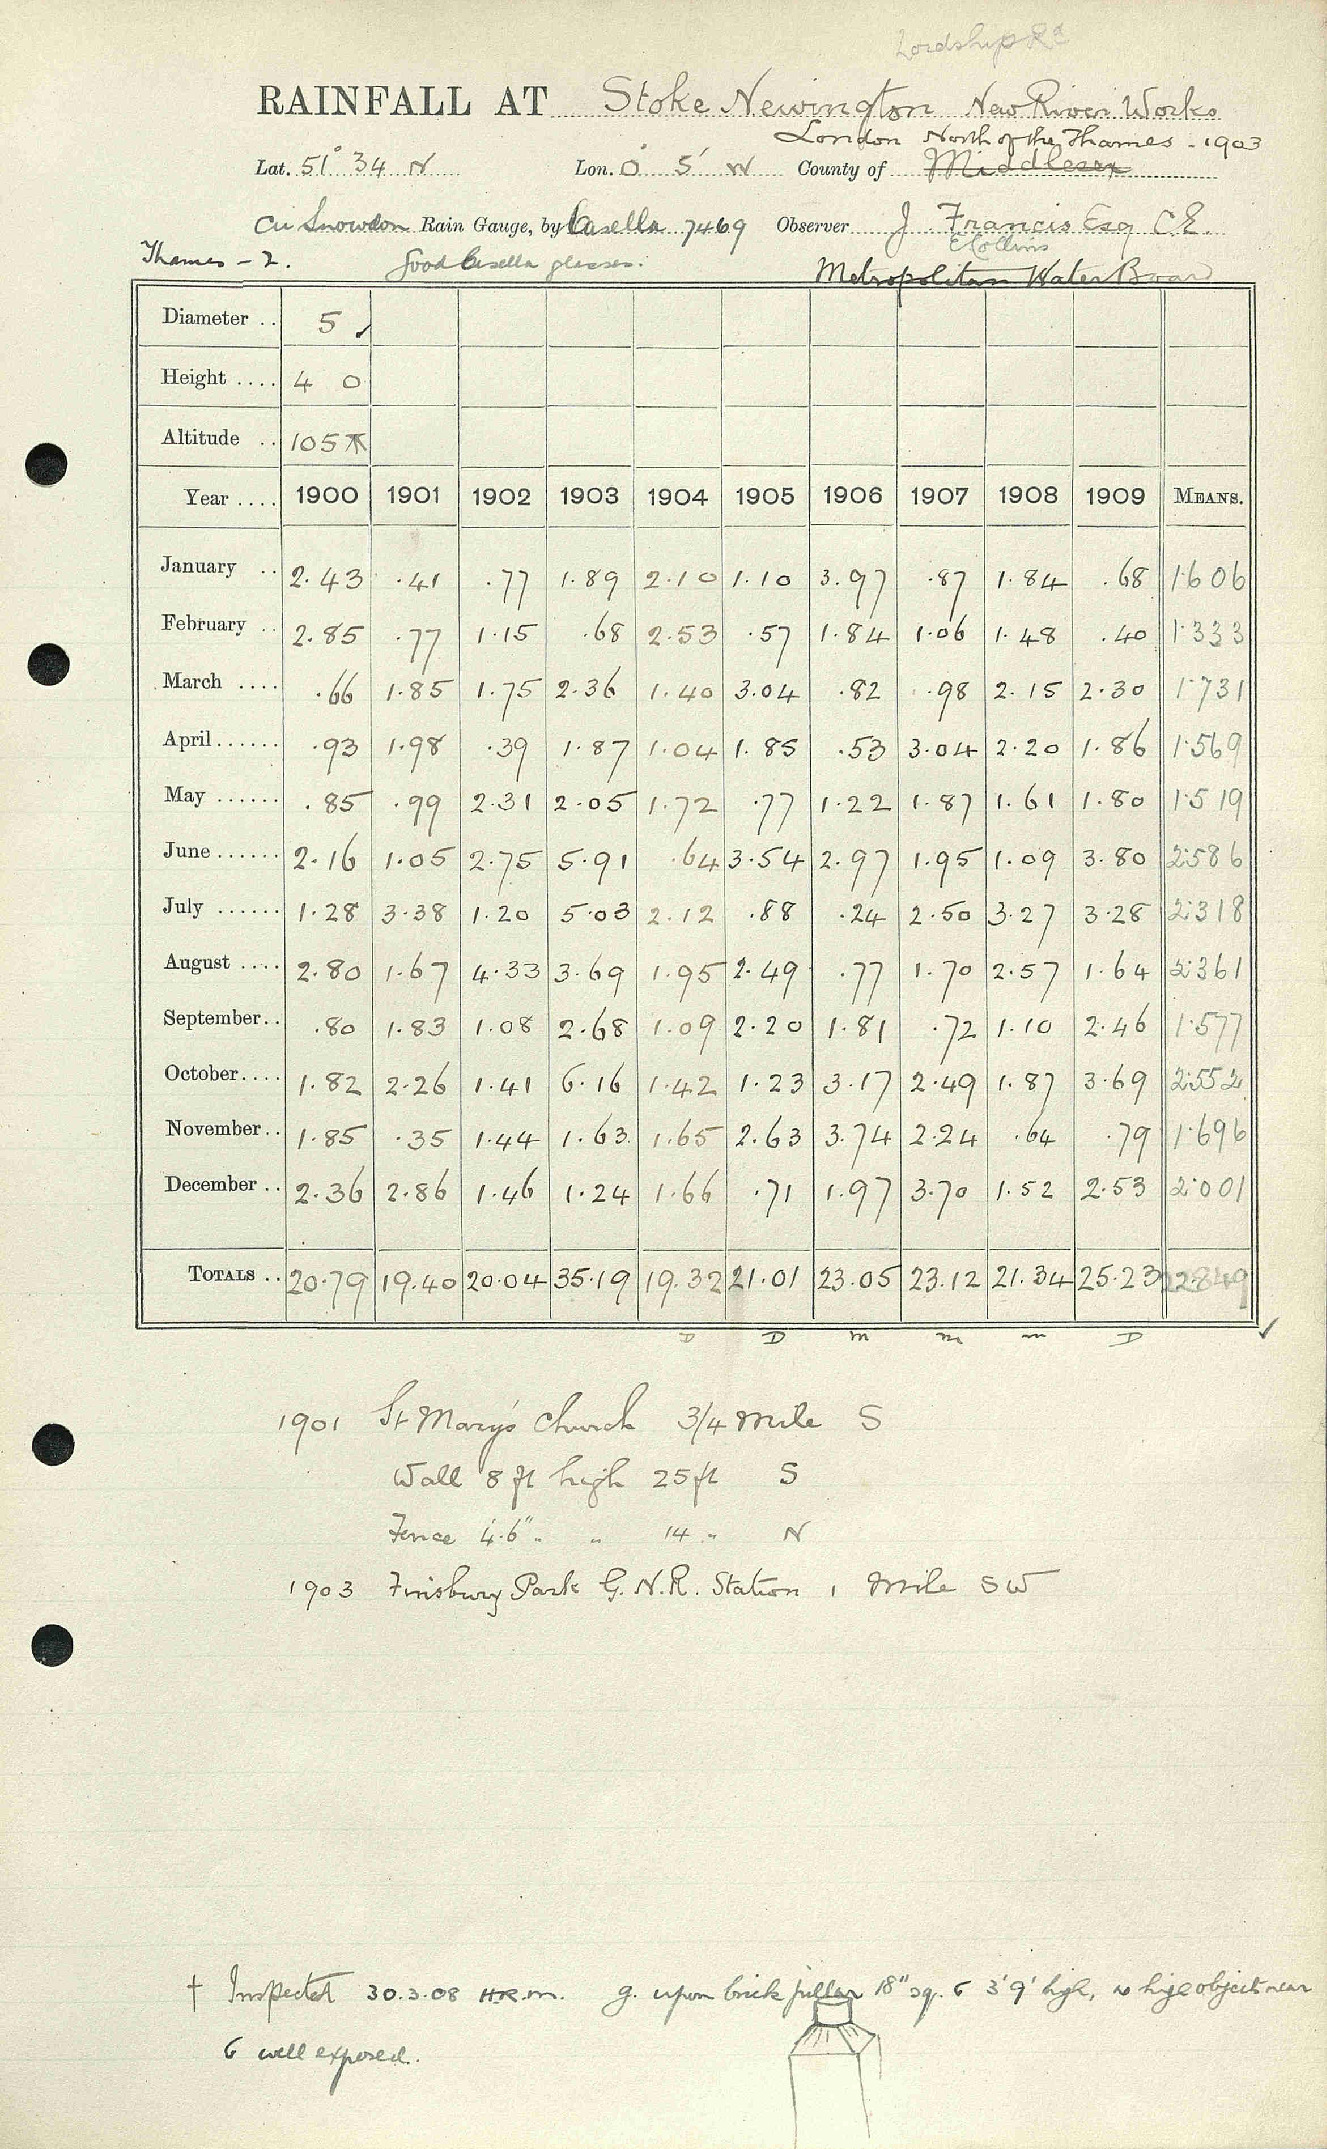 Lordship Rd
RAINFALL AT Stoke Newington New River Works
London North of the Thames - 1903
Lat. 51° 34 N Lon. 0° 5' W County of Middlesex
Cu Snowdon Rain Gauge, by Casella 7469 Observer J. Francis Esq C.E.
E Collins
Thames - 2. Good Casella glasses. Metropolitan Water Board
Diameter .. 5
Height .... 4 0
Altitude .. 105
Year .... 1900 1901 1902 1903 1904 1905 1906 1907 1908 1909 MEANS.
January .. 2.43 .41 .77 1.89 2.10 1.10 3.97 .87 1.84 .68 1.606
February .. 2.85 .77 1.15 .68 2.53 .57 1.84 1.06 1.48 .40 1.333
March .... .66 1.85 1.75 2.36 1.40 3.04 .82 .98 2.15 2.30 1.731
April ...... .93 1.98 .39 1.87 1.04 1.85 .53 3.04 2.20 1.86 1.569
May ...... .85 .99 2.31 2.05 1.72 .77 1.22 1.87 1.61 1.80 1.519
June ...... 2.16 1.05 2.75 5.91 .64 3.54 2.97 1.95 1.09 3.80 2.586
July ...... 1.28 3.38 1.20 5.03 2.12 .88 .24 2.50 3.27 3.28 2.318
August .... 2.80 1.67 4.33 3.69 1.95 2.49 .77 1.70 2.57 1.64 2.361
September.. .80 1.83 1.08 2.68 1.09 2.20 1.81 .72 1.10 2.46 1.577
October.... 1.82 2.26 1.41 6.16 1.42 1.23 3.17 2.49 1.87 3.69 2.552
November.. 1.85 .35 1.44 1.63 1.65 2.63 3.74 2.24 .64 .79 1.696
December .. 2.36 2.86 1.46 1.24 1.66 .71 1.97 3.70 1.52 2.53 2.001
TOTALS .. 20.79 19.40 20.04 35.19 19.32 21.01 23.05 23.12 21.34 25.23 22.849
D D m m m D
1901 St Mary's Church 3/4 Mile S
Wall 8 ft high 25 ft S
Fence 4.6" " " 14 " N
1903 Finsbury Park G.N.R. Station 1 Mile SW
† Inspected 30.3.08 H.R.M. g. upon brick pillar 18" sq. & 3' 9' high, no high object near
& well exposed.